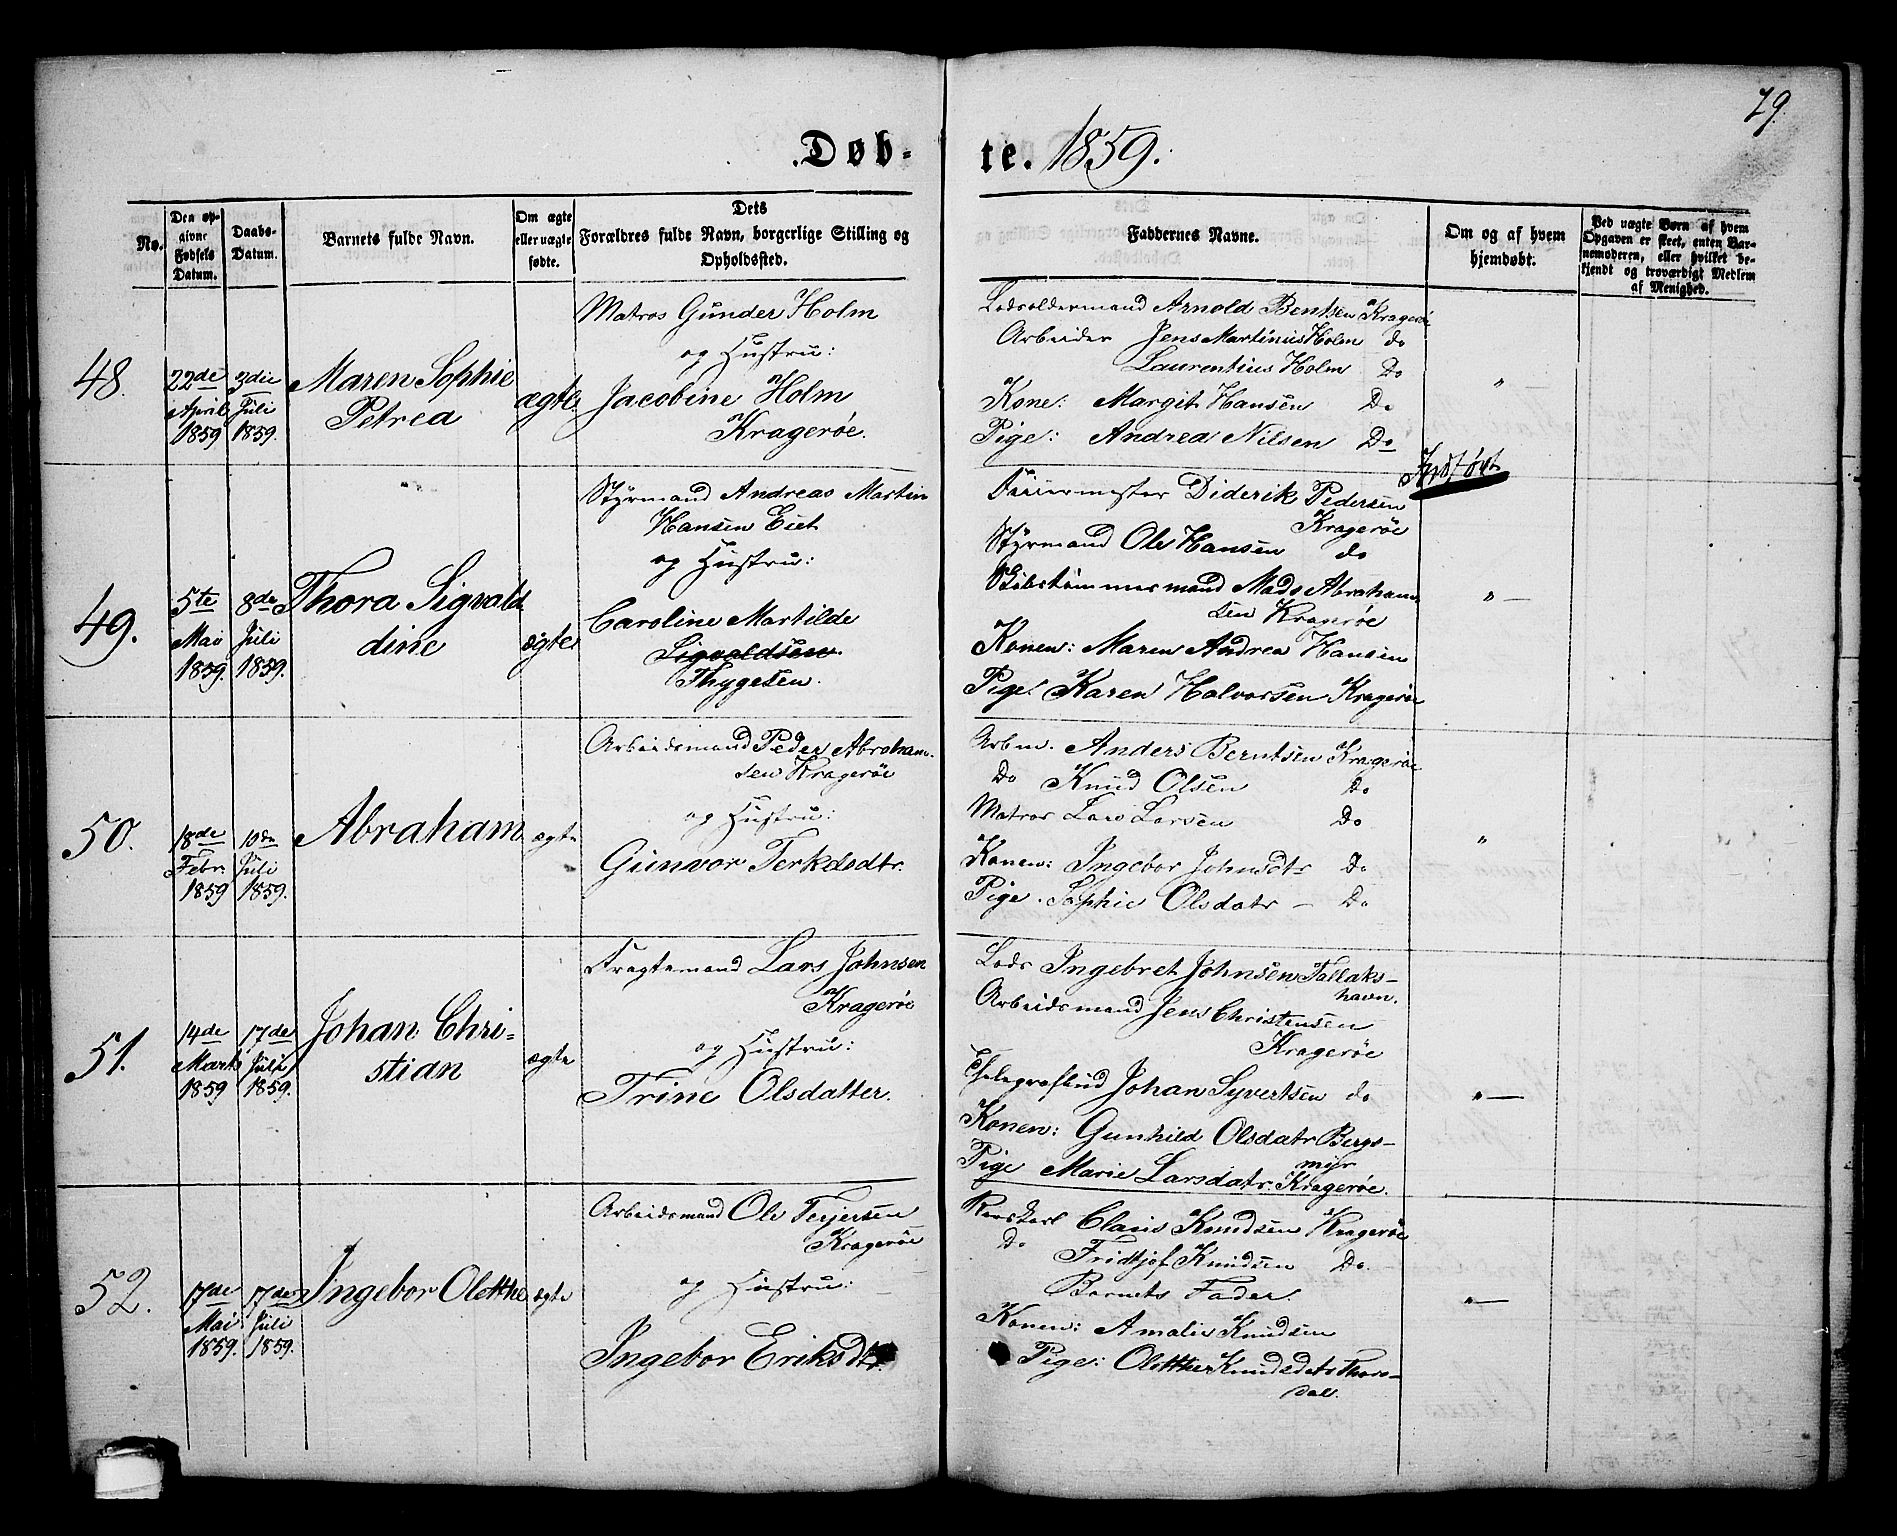 79.
Døb-
te. 1859.
No.
Den op-
givne
Fødsels
Datum.
Daabs-
Datum.
Barnets fulde Navn.
Om ægte
eller uægte
fødte.
Dets
Forældres fulde Navn, borgerlige Stilling og
Opholdssted.
Faddernes Navne.
Om og af hvem
hjemdøbt.
Ved uægte Børn af hvem
Opgaven er skeet, enten Bar-
nemoderen, eller hvilket be-
kjendt og troværdigt Medlem
af Menighed.
48.
22de
April
1859
3die
Juli
1859.
Maren Sophie
Petrea
ægte
Matros Gunder Holm
og Hustru:
Jacobine Holm
Kragerøe.
Lodsoldermand Arnold Bentsen Kragerøe
Arbeider Jens Martinius Holm do
Laurentius Holm Do
Kone: Margit Hansen Do
Pige: Andrea Nilsen Do
"
49.
5te
Mai
1859.
8de
Juli
1859.
Thora Sigvald
dine
ægte
Styrmand Andreas Martin
Hansen Eiet
og Hustru:
Caroline Martilde
Sigvaldsen
Thygesen.
Indført
Diderik Pedersen
Kragerøe
Styrmand Ole Hansen do
Skibstømmermand Mads Abraham
sen Kragerøe
Konen: Maren Andrea Hansen
Pige: Karen Halvorsen Kragerøe
" —
50.
18de
Febr.
1859
10de
Juli
1859.
Abraham
ægte
Arbeidsmand Peder Abraham-
sen Kragerøe
og Hustru:
Gunvor Terkelsdtr.
Arbm. Anders Berntsen Kragerøe
Do Knud Olsen Do
Matros Lars Larsen Do
Konen: Ingebor Johnsdtr Do
Pige. Sophie Olsdatr — Do
"
51.
14de
Marts
1859
17de
Juli
1859.
Johan Chri-
stian
ægte
Fragtemand Lars Johnsen
Kragerøe
og Hustru:
Trine Olsdatter.
Lods Ingebret Johnsen Tallaks-
havn.
Arbeidsmand Jens Christensen
Kragerøe
Thelegrafbud Johan Syvertsen do
Konen: Gunhild Olsdatr Bergs-
myr
Pige Marie Larsdatr. Kragerøe.
" —
52.
17de
Mai
1859.
17de
Juli
1859.
Ingebor Olethe
ægte
Arbeidsmand Ole Terjersen
Kragerøe
og Hustru:
Ingebor Eriksdtr.
Claus Knudsen Kragerøe
Do Fridtjof Knudsen Do.
Barnets Fader.
Konen: Amalie Knudsen
Pige: Olethe Knudsdatr Thors-
dal.
" —